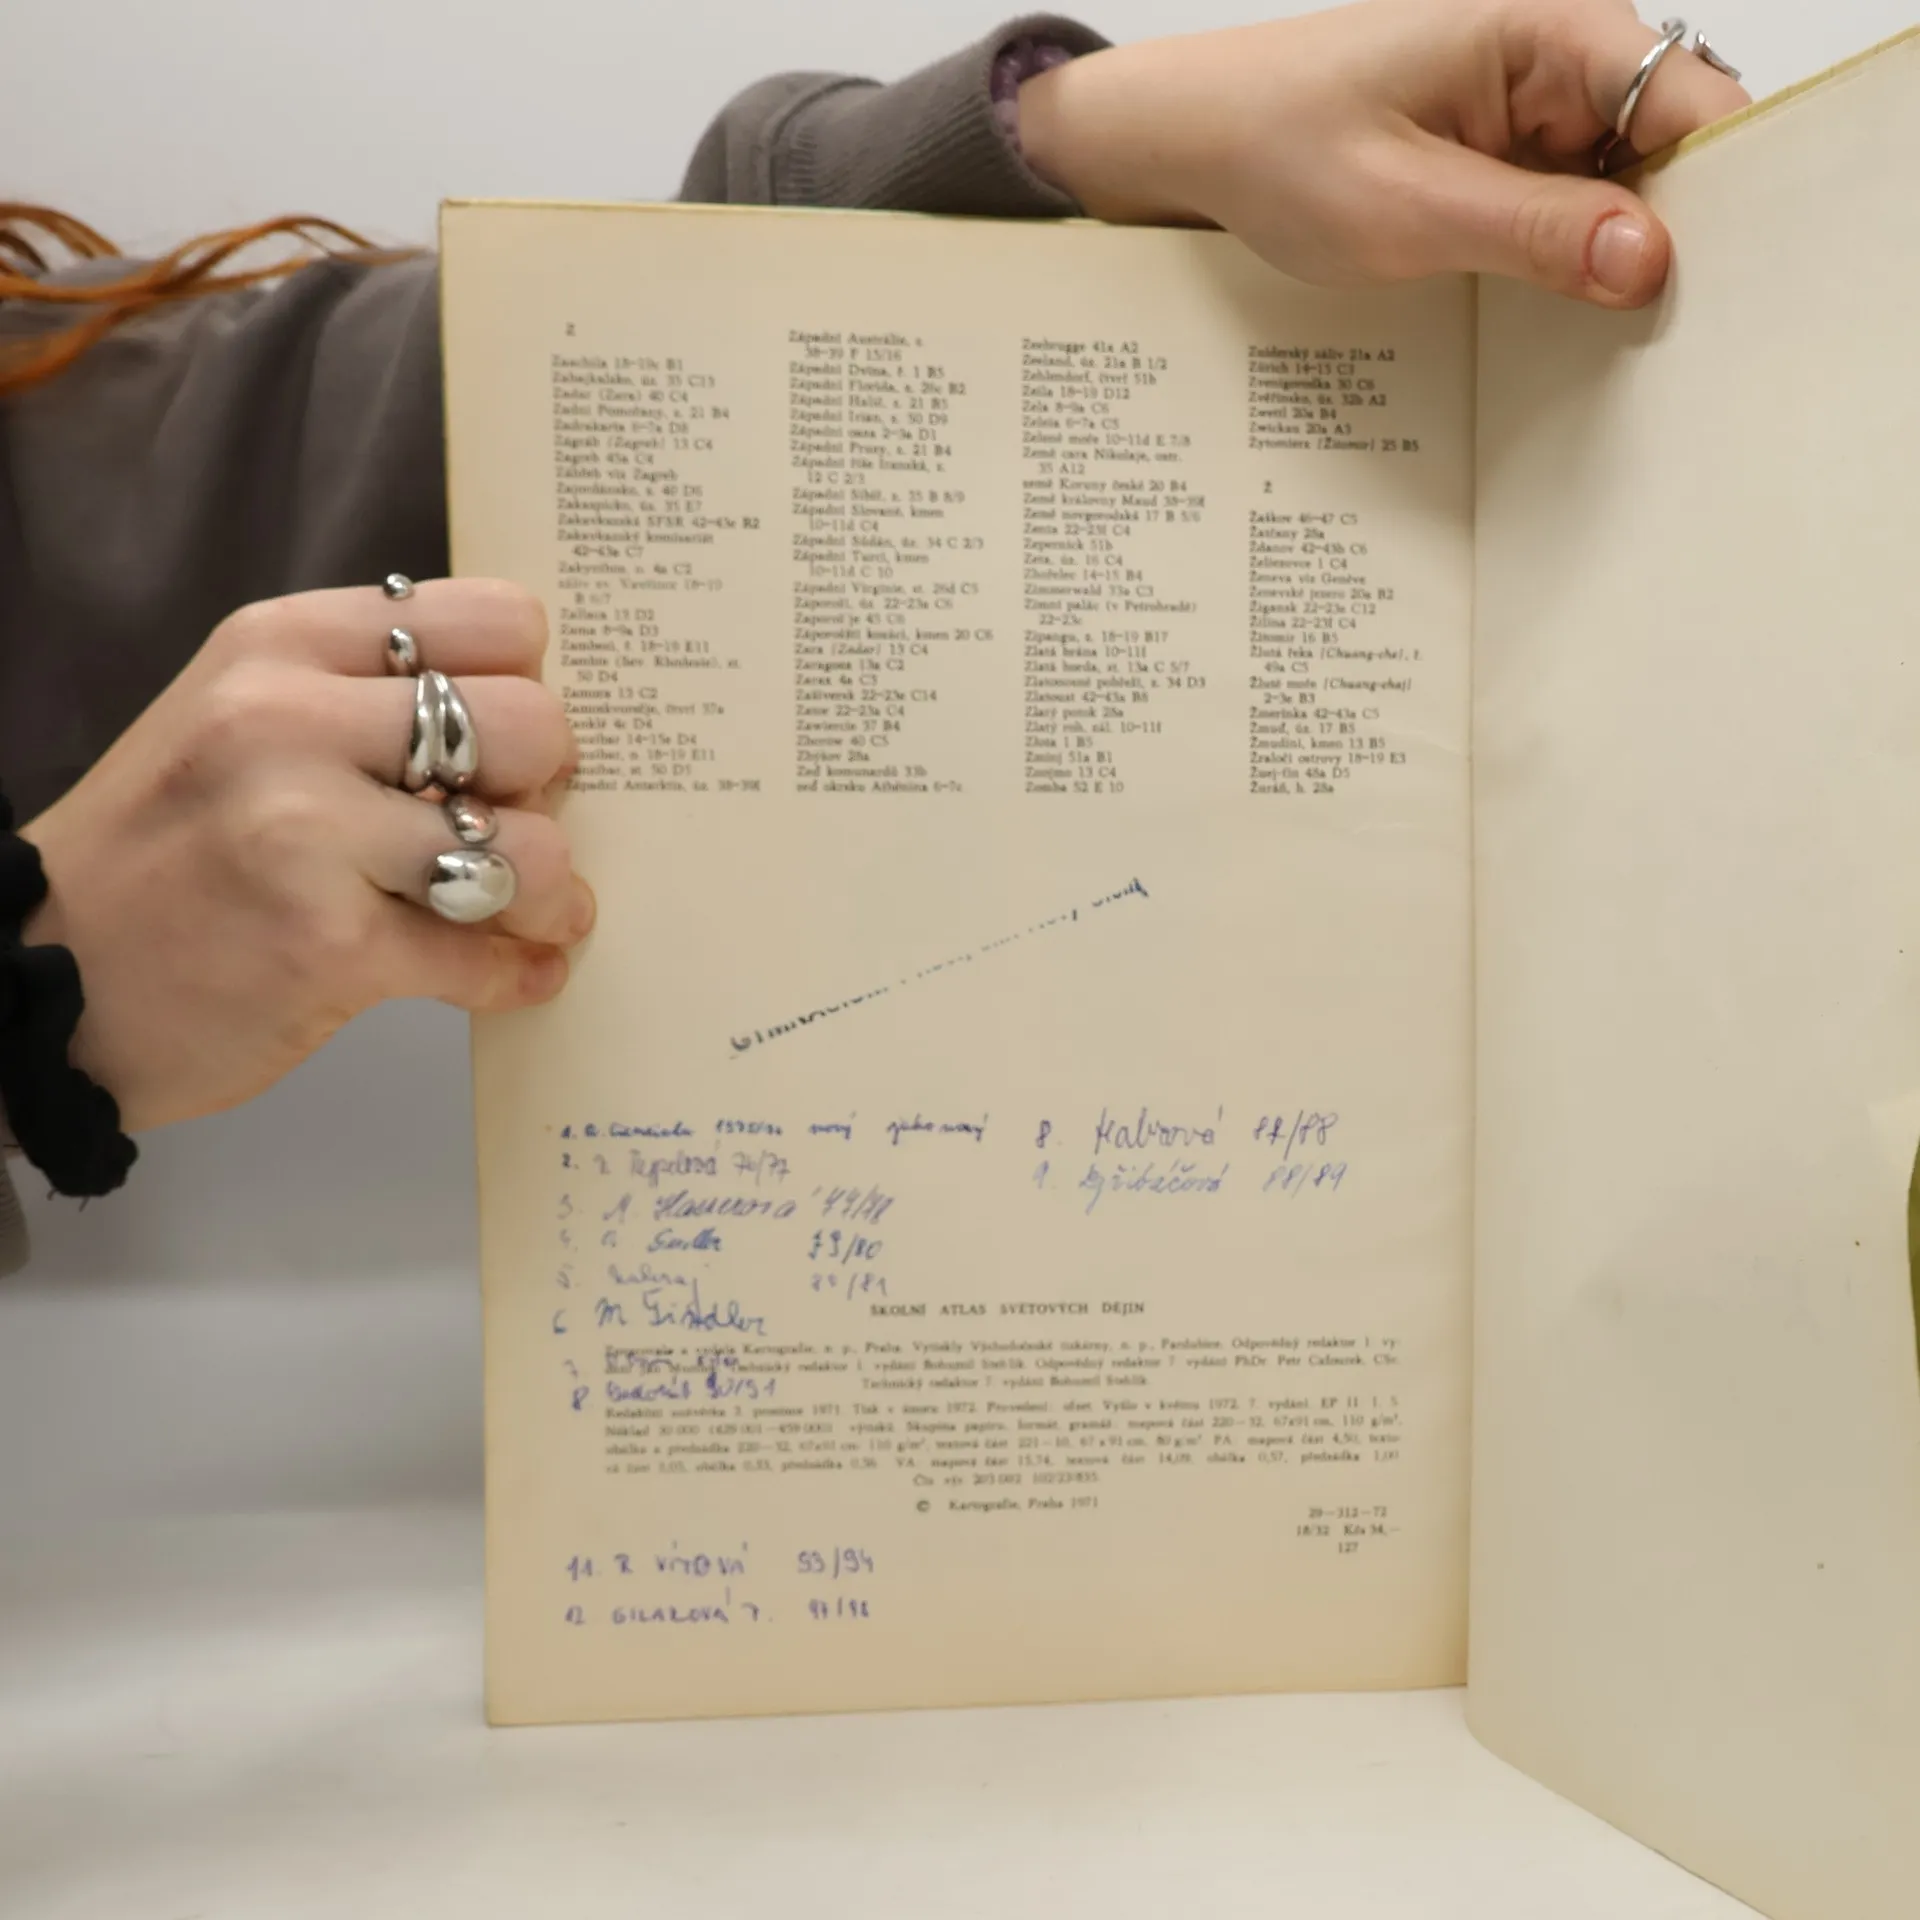 Z
Zaachila 18-19c B1
Zabajkalsko, úz. 35 C13
Zadar (Zara) 40 C4
Zadní Pomořany, z. 21 B4
Zadrakarta 6-7a D8
Zágráb (Zagreb) 13 C4
Zagreb 45a C4
Záhřeb viz Zagreb
Zajordánsko, z. 40 D6
Zakaspicko, úz. 35 E7
Zakavkazská SFSR 42-43e B2
Zakavkazský komisariát
42-43a C7
Zakynthos, o. 4a C2
záliv sv. Vavřince 18-19
B 6/7
Zallaca 13 D2
Zama 8-9a D3
Zambezi, ř. 18-19 E11
Zambie (Sev. Rhodesie), st.
50 D4
Zamora 13 C2
Zamoskvorečje, čtvrť 37a
Zanklé 4c D4
14-15e D4
o. 18-19 E11
st. 50 D5
Západní Antarktis, úz. 38-39f
Západní Austrálie, z.
38-39 F 15/16
Západní Dvina, ř. 1 B5
Západní Florida, z. 26c B2
Západní Halič, z. 21 B5
Západní Irian, z. 50 D9
Západní oasa 2-3a D1
Západní Prusy, z. 21 B4
Západní říše franská, z.
12 C 2/3
Západní Sibiř, z. 35 B 8/9
Západní Slované, kmen
10-11d C4
Západní Súdán, úz. 34 C 2/3
Západní Turci, kmen
10-11d C 10
Západní Virginie, st. 26d C5
Záporoží, úz. 22-23a C6
Záporož'je 45 C6
Záporožští kozáci, kmen 20 C6
Zara (Zadar) 13 C4
Zaragoza 13a C2
Zarax 4a C3
Zašiversk 22-23e C14
Zator 22-23a C4
Zawiercie 37 B4
Zborów 40 C5
Zbýšov 28a
Zeď komunardů 33b
zeď okrsku Athénina 6-7c
Zeebrugge 41a A2
Zeeland, úz. 21a B 1/2
Zehlendorf, čtvrť 51b
Zeila 18-19 D12
Zela 8-9a C6
Zeleia 6-7a C5
Zelené moře 10-11d E 7/8
Země cara Nikolaje, ostr.
35 A12
země Koruny české 20 B4
Země královny Maud 38-39f
Země novgorodská 17 B 5/6
Zenta 22-23f C4
Zepernick 51b
Zeta, úz. 16 C4
Zhořelec 14-15 B4
Zimmerwald 33a C3
Zimní palác (v Petrohradě)
22-23c
Zipangu, z. 18-19 B17
Zlatá brána 10-11f
Zlatá horda, st. 13a C 5/7
Zlatonosné pobřeží, z. 34 D3
Zlatoust 42-43a B8
Zlatý potok 28a
Zlatý roh, zál. 10-11f
Zlota 1 B5
Zminj 51a B1
Znojmo 13 C4
Zomba 52 E 10
Zuiderský záliv 21a A2
Zürich 14-15 C3
Zvenigorodka 30 C6
Zvěřinsko, úz. 32b A2
Zwettl 20a B4
Zwickau 20a A3
Żytomierz (Žitomir) 25 B5
Ž
Žaškov 46-47 C5
Žatčany 28a
Ždanov 42-43b C6
Želiezovce 1 C4
Ženeva viz Genève
Ženevské jezero 20a B2
Žigansk 22-23e C12
Žilina 22-23f C4
Žitomir 16 B5
Žlutá řeka (Chuang-che), ř.
49a C5
Žluté moře (Chuang-chaj)
2-3e B3
Žmerinka 42-43a C5
Žmuď, úz. 17 B5
Žmudíni, kmen 13 B5
Žraločí ostrovy 18-19 E3
Žuej-ťin 48a D5
Žuráň, h. 28a
1. nový jako nový
2. 76/77
3. 77/78
4. 79/80
5. 80/81
6 M
7
8 90/91
8. 87/88
9. 88/89
ŠKOLNÍ ATLAS SVĚTOVÝCH DĚJIN
Zpracovala a vydala Kartografie, n. p., Praha. Vytiskly Východočeské tiskárny, n. p., Pardubice. Odpovědný redaktor 1. vy-
Technický redaktor 1. vydání Bohumil Stehlík. Odpovědný redaktor 7. vydání PhDr. Petr Cafourek, CSc.
Technický redaktor 7. vydání Bohumil Stehlík.
Redakční uzávěrka 3. prosince 1971. Tisk v únoru 1972. Provedení: ofset. Vyšlo v květnu 1972. 7. vydání. EP II 1. 5.
Náklad 30 000 (429 001—459 000) výtisků. Skupina papíru, formát, gramáž: mapová část 220—32, 67x91 cm, 110 g/m²,
obálka a předsádka 220—32, 67x91 cm 110 g/m², textová část 221—10, 67 x 91 cm, 80 g/m². PA: mapová část 4,50, texto-
vá část obálka 0,33, předsádka 0,56. VA: mapová část 15,74, textová část 14,09, obálka 0,57, předsádka 1,00
© Kartografie, Praha 1971
29—312—72
18/32 Kčs 34,—
127
11. R VÍTOVÁ 93/94
12 97/98